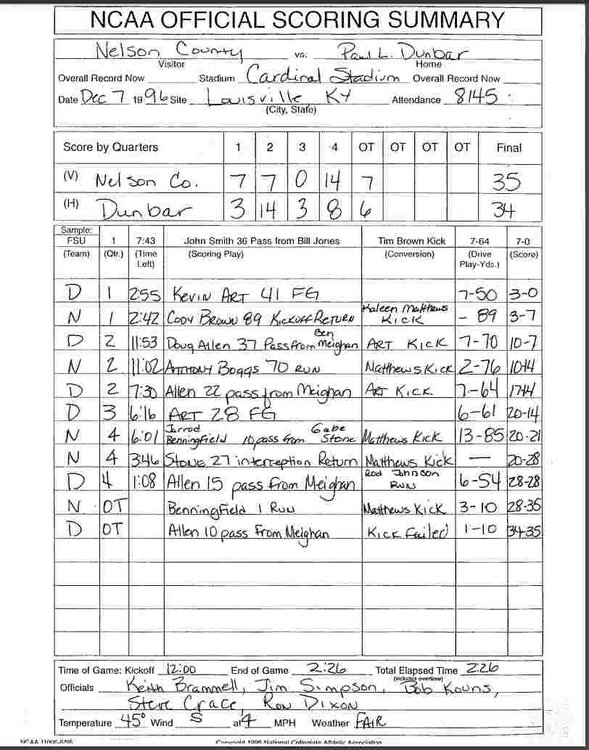 NCAA OFFICIAL SCORING SUMMARY
Nelson County vs. Paul L. Dunbar
Visitor Home
Overall Record Now Stadium Cardinal Stadium Overall Record Now
Date Dec 7 1996 Site Louisville KY Attendance 8145
(City, State)
Score by Quarters 1 2 3 4 OT OT OT OT Final
(V) Nelson Co. 7 7 0 14 7 35
(H) Dunbar 3 14 3 8 6 34
Sample:
FSU 1 7:43 John Smith 36 Pass from Bill Jones Tim Brown Kick 7-64 7-0
(Team) (Qtr.) (Time Left) (Scoring Play) (Conversion) (Drive Play-Yds.) (Score)
D 1 2:55 Kevin ART 41 FG 7-50 3-0
N 1 2:42 Cody Brown 89 Kickoff Return Kaleen Matthews Kick - 89 3-7
D 2 11:53 Doug Allen 37 Pass from Ben Meighan ART Kick 7-70 10-7
N 2 11:02 Anthony Boggs 70 Run Matthews Kick 2-76 10-14
D 2 7:30 Allen 22 pass from Meighan Art Kick 7-64 17-14
D 3 6:16 ART 28 FG 6-61 20-14
N 4 6:01 Jarrod Benningfield 10 pass from Gabe Stone Matthews Kick 13-85 20-21
N 4 3:46 Stone 27 interception Return Matthews Kick — 20-28
D 4 1:08 Allen 15 pass from Meighan Rod Johnson Run 6-54 28-28
N OT Benningfield 1 Run Matthews Kick 3-10 28-35
D OT Allen 10 pass from Meighan Kick Failed 1-10 34-35
Time of Game: Kickoff 12:00 End of Game 2:26 Total Elapsed Time 2:26
(includes overtime)
Officials Keith Brammell, Jim Simpson, Bob Kouns,
Steve Crace, Ron Dixon
Temperature 45° Wind S at 4 MPH Weather FAIR
Copyright 1996 National Collegiate Athletic Association